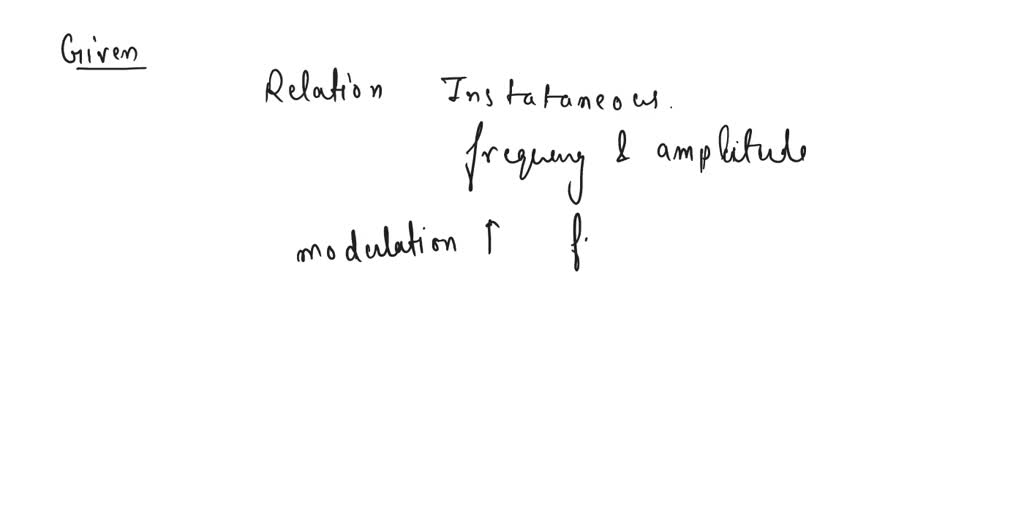 Given
Relation Instataneous.
frequency & amplitude
modulation ↑ f.